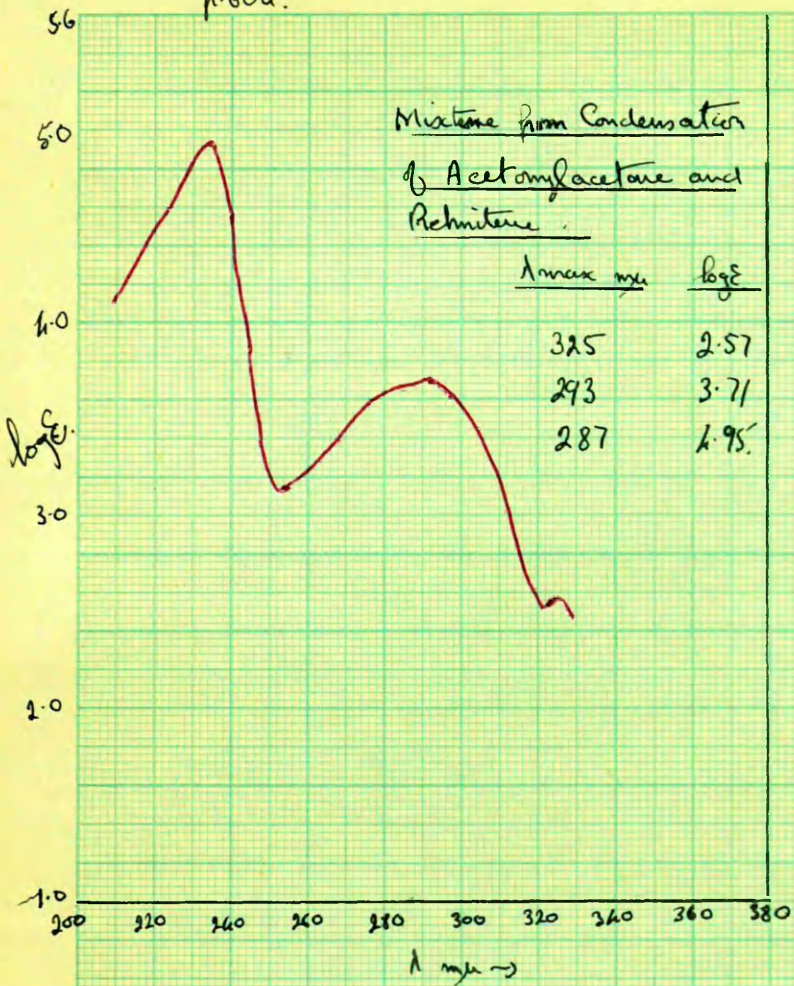 p.60a.
5.6
5.0
Mixture from Condensation
of Acetonylacetone and
Prehnitene.
λmax mμ logε
4.0
325 2.57
293 3.71
287 4.95.
logε.
3.0
2.0
1.0
200 220 240 260 280 300 320 340 360 380
λ mμ →